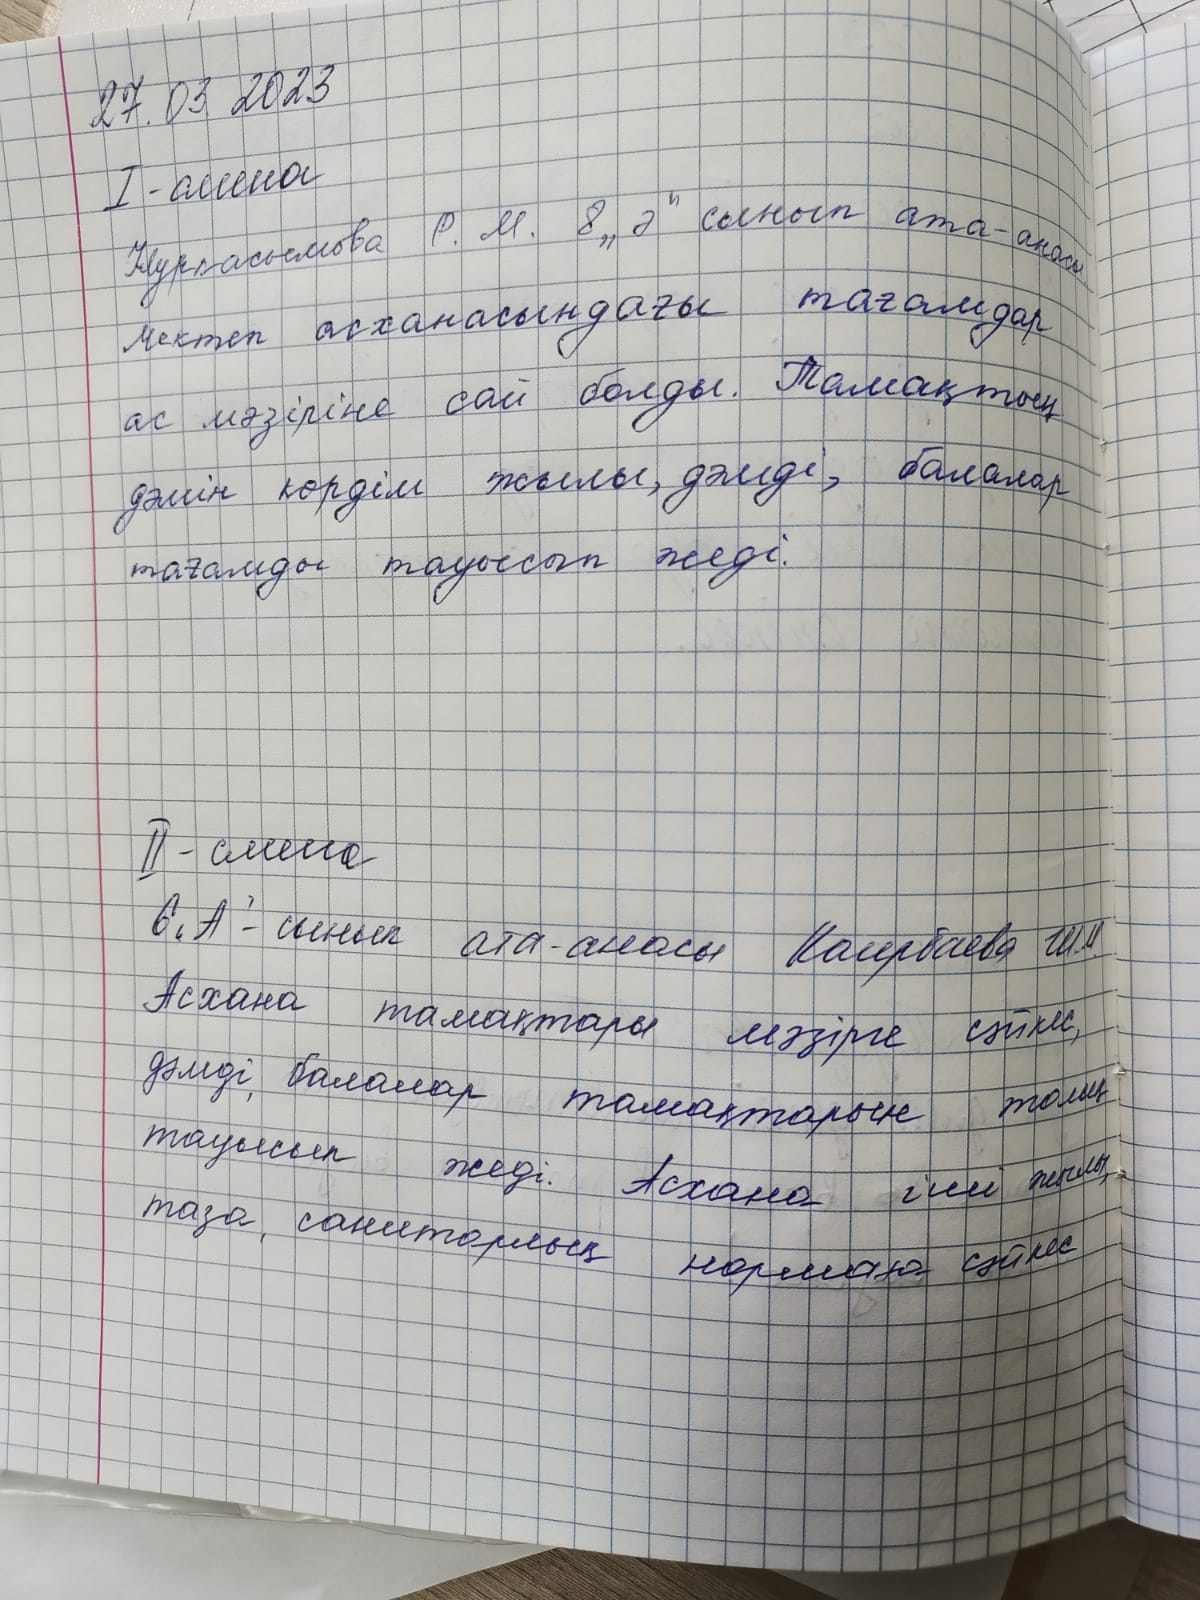 27.03 2023
I - смена
Нурпасымова Р. М. 8 „ә" сынып ата-анасы
Мектеп асханасындағы тағамдар
ас мәзіріне сай болды. Тамақтың
дәмін көрдім жылы, дәмді, балалар
тағамды тауысып жеді.
II - смена
6 „А" - сынып ата-анасы Каирбаева Ш.М.
Асхана тамақтары мәзірге сәйкес,
дәмді, балалар тамақтарын толық
тауысып жеді. Асхана іші жылы,
таза, санитарлық нормаға сәйкес